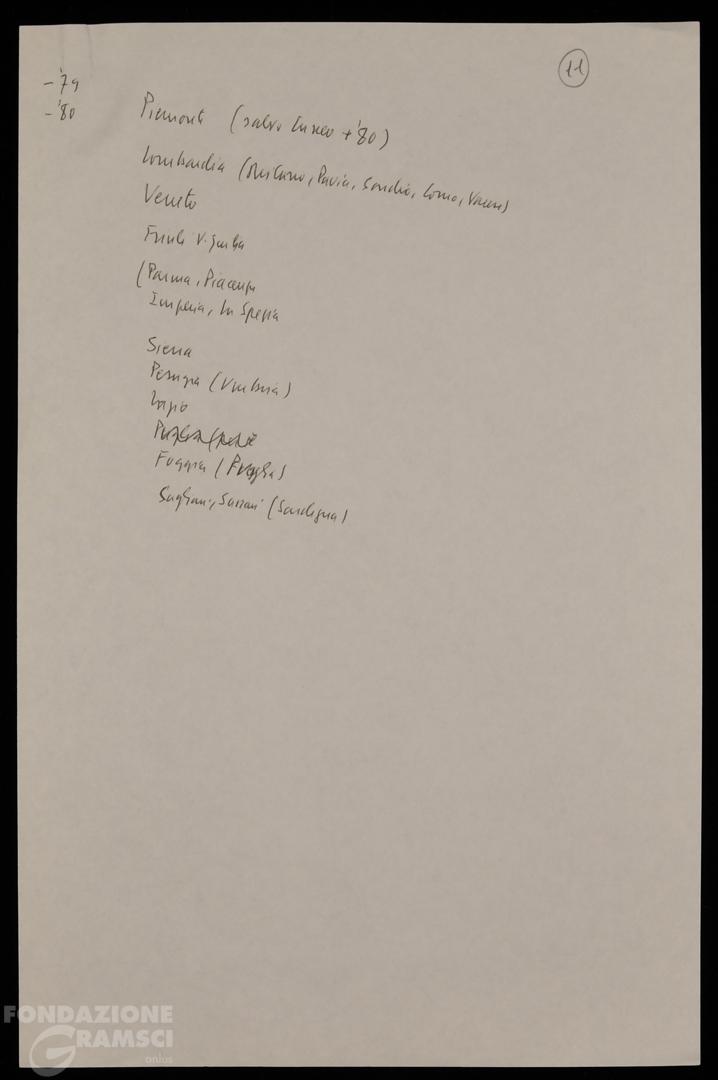 11
- '79
- '80
Piemonte (salvo Cuneo + '80)
Lombardia (Milano, Pavia, Sondrio, Como, Varese)
Veneto
Friuli V. Giulia
(Parma, Piacenza
Imperia, La Spezia
Siena
Perugia (Umbria)
Lazio
Foggia (Puglia)
Cagliari, Sassari (Sardegna)
FONDAZIONE
GRAMSCI
onlus